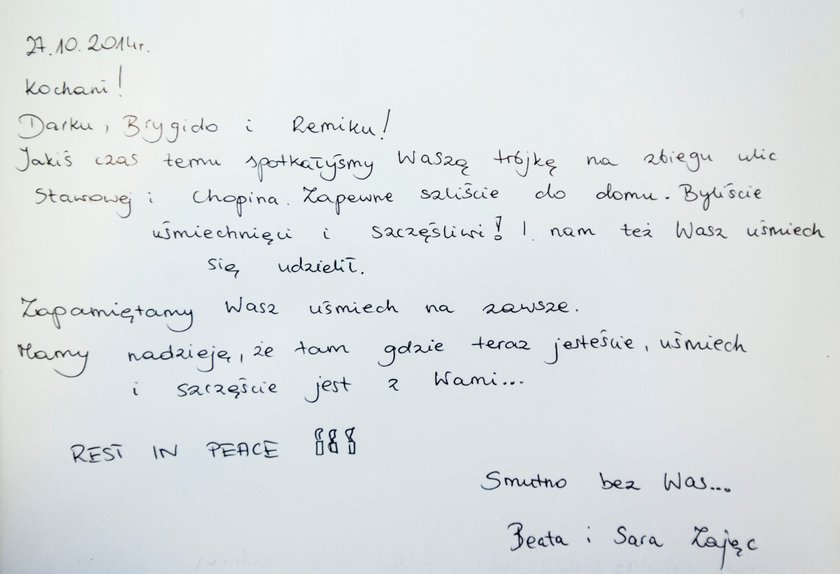 27.10.2014r.
Kochani!
Darku, Brygido i Remiku!
Jakiś czas temu spotkałyśmy Waszą trójkę na zbiegu ulic
Stawowej i Chopina. Zapewne szliście do domu. Byliście
uśmiechnięci i szczęśliwi! I nam też Wasz uśmiech
się udzielił.
Zapamiętamy Wasz uśmiech na zawsze.
Mamy nadzieję, że tam gdzie teraz jesteście, uśmiech
i szczęście jest z Wami...
REST IN PEACE !!!
Smutno bez Was...
Beata i Sara Zając